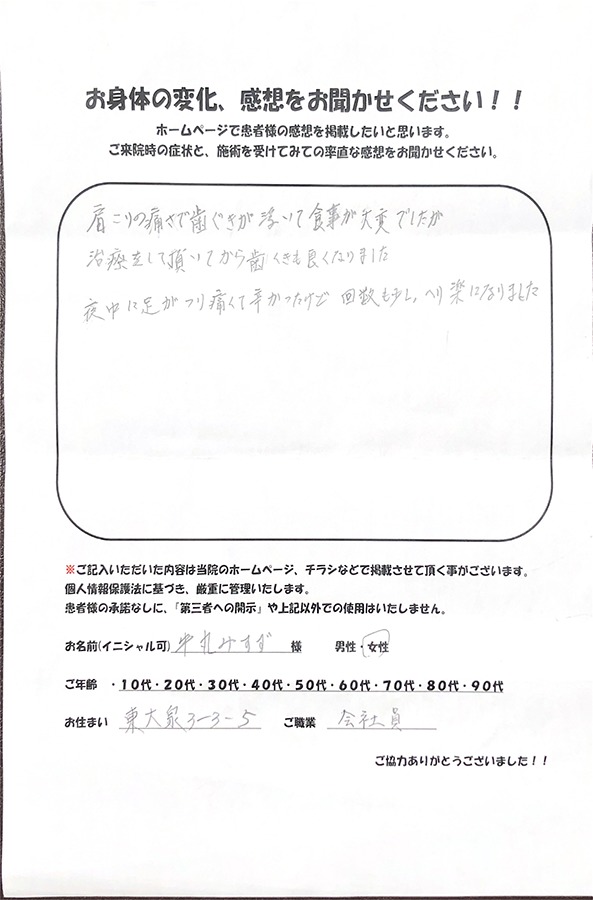 お身体の変化、感想をお聞かせください！！
ホームページで患者様の感想を掲載したいと思います。
ご来院時の症状と、施術を受けてみての率直な感想をお聞かせください。
肩こりの痛さで歯ぐきが浮いて食事が大変でしたが
治療をして頂いてから歯ぐきも良くなりました
夜中に足がつり痛くて辛かったけど 回数も少しへり楽になりました
※ご記入いただいた内容は当院のホームページ、チラシなどで掲載させて頂く事がございます。
個人情報保護法に基づき、厳重に管理いたします。
患者様の承諾なしに、「第三者への開示」や上記以外での使用はいたしません。
お名前(イニシャル可) 牛丸みすず 様 男性・女性
ご年齢 ・10代・20代・30代・40代・50代・60代・70代・80代・90代
お住まい 東大泉3-3-5 ご職業 会社員
ご協力ありがとうございました！！